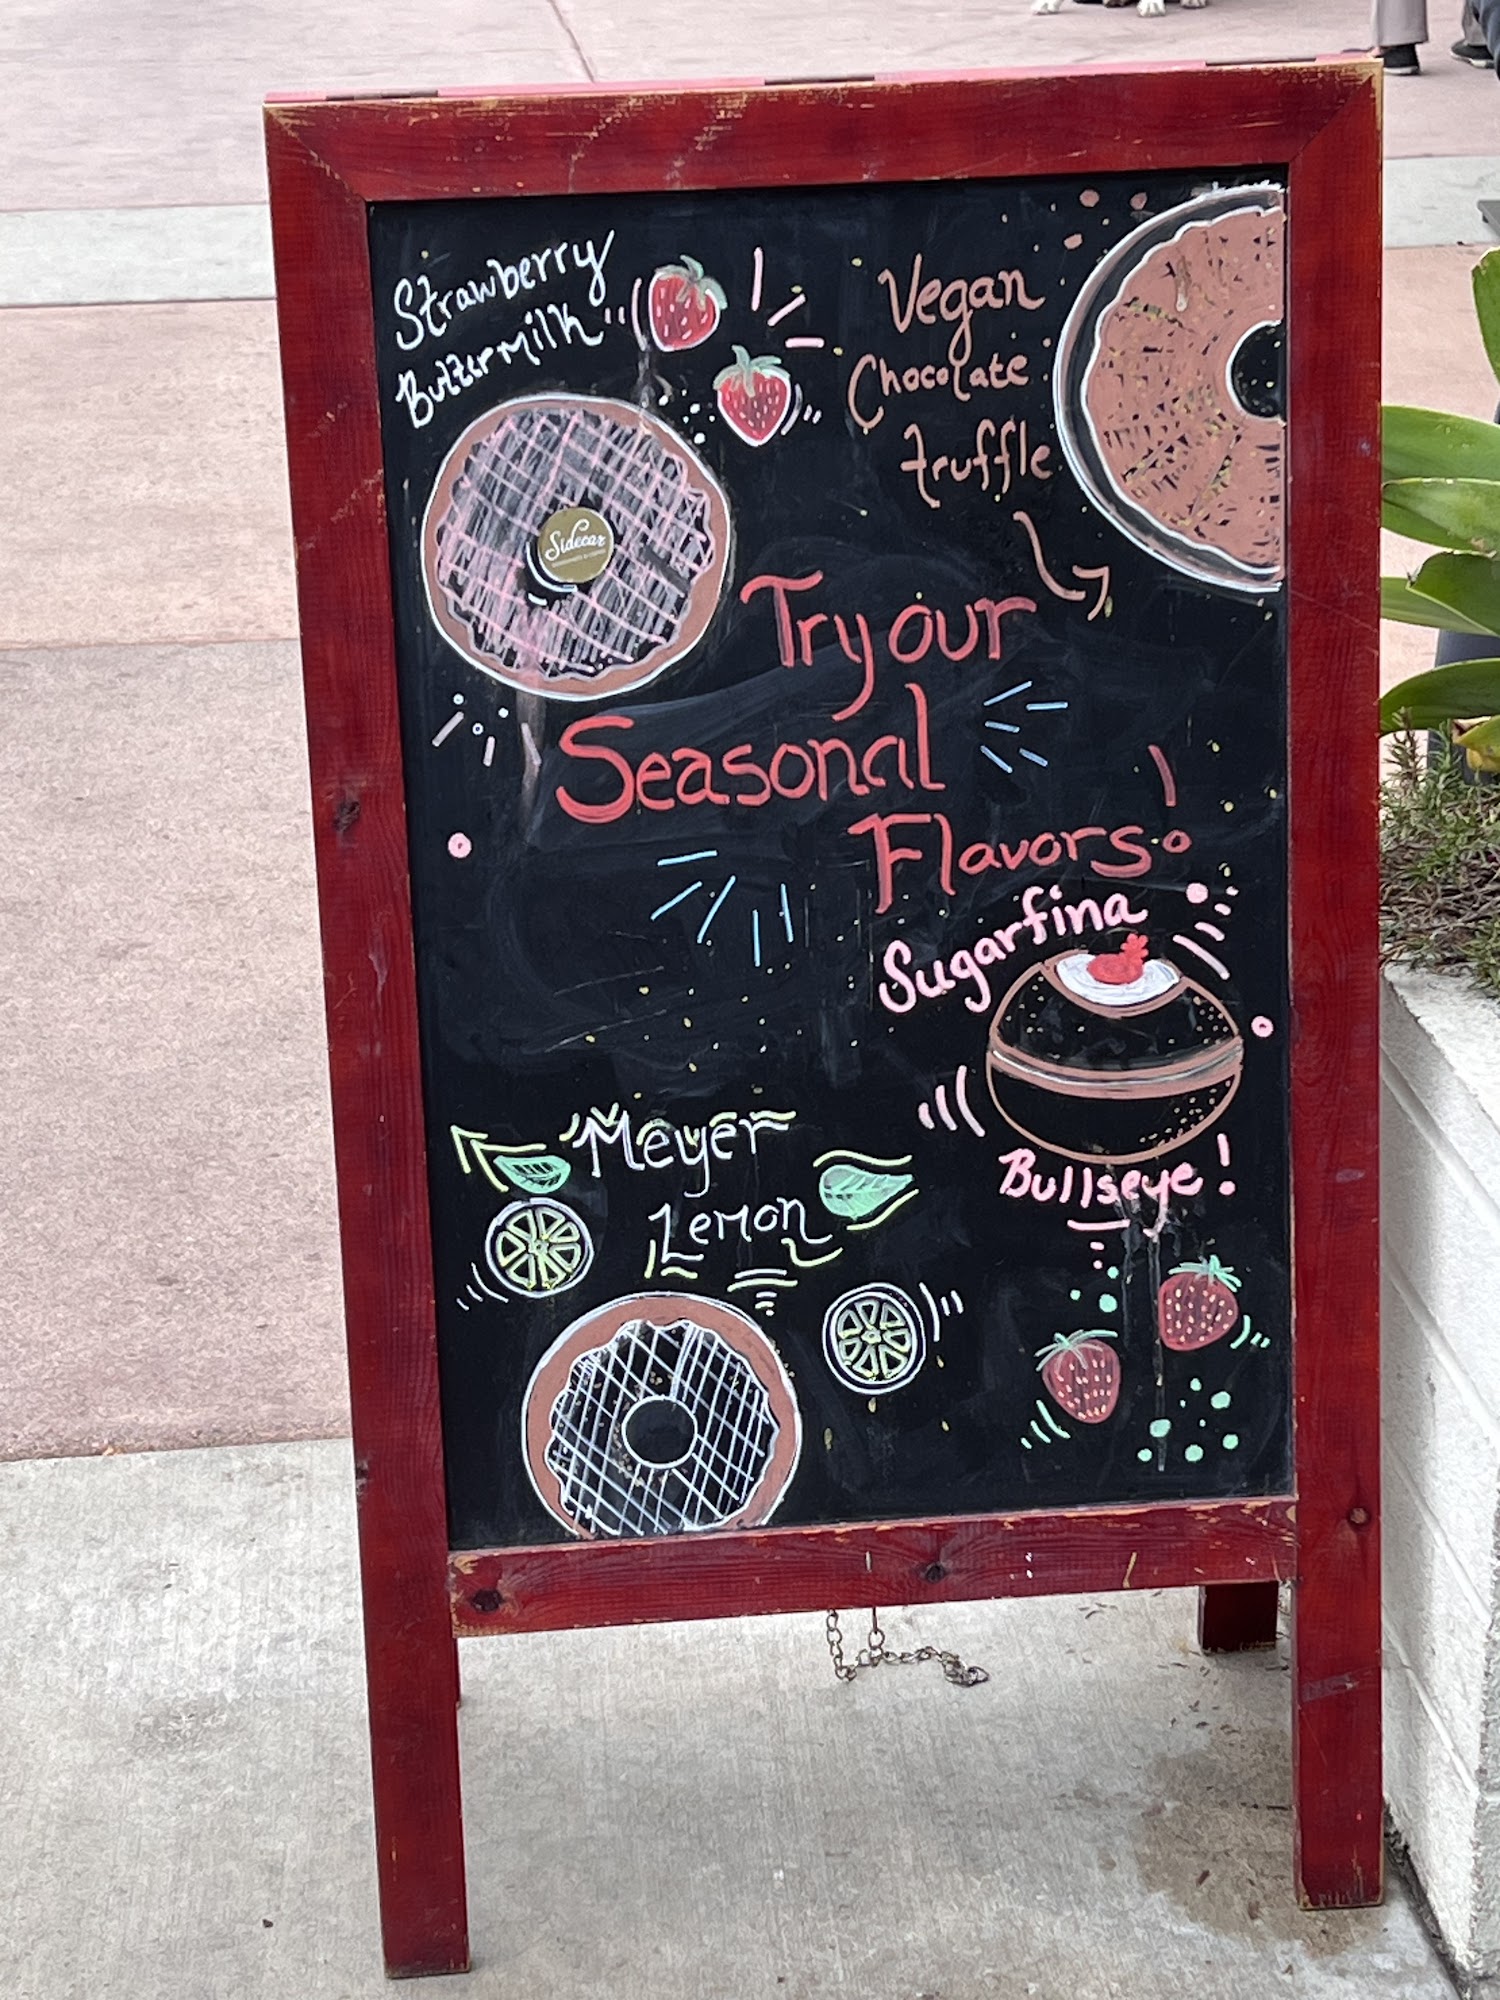 Strawberry
Buttermilk
Sidecar
Vegan
Chocolate
truffle
Try our
Seasonal
Flavors
Sugarfina
Bullseye!
Meyer
Lemon